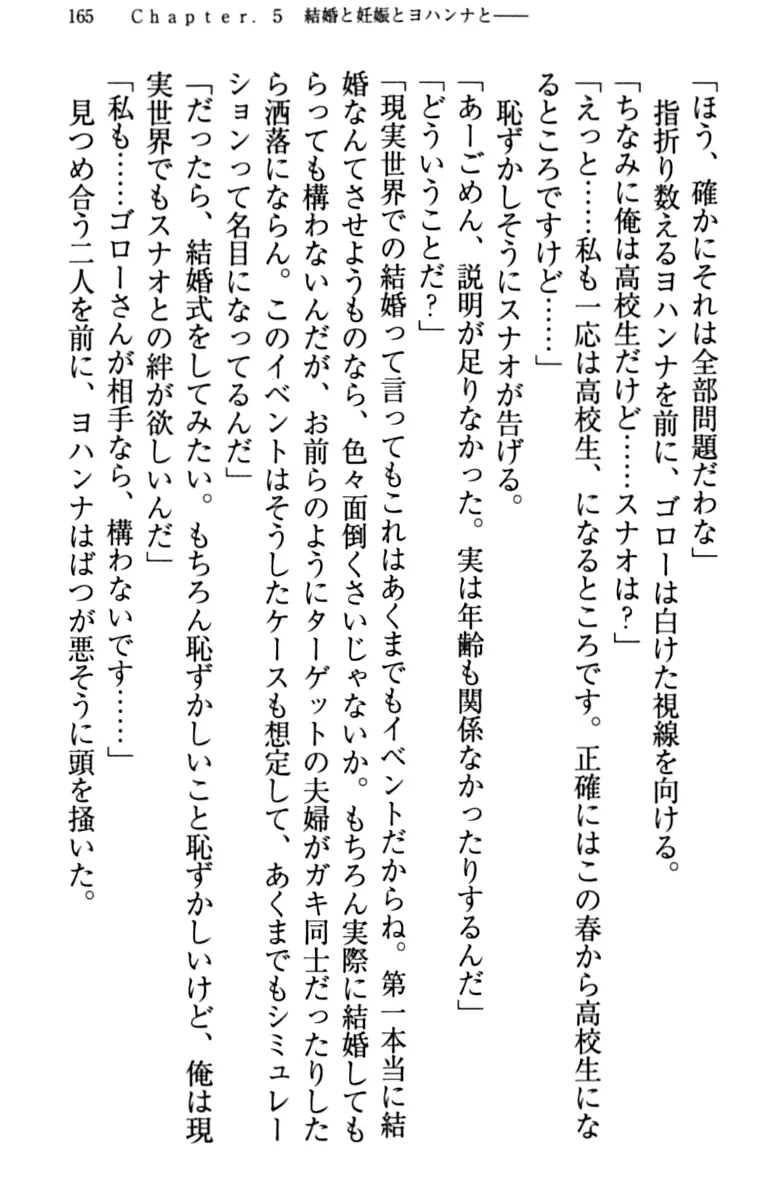 165　Chapter. 5　結婚と妊娠とヨハンナと――
「ほう、確かにそれは全部問題だわな」
　指折り数えるヨハンナを前に、ゴローは白けた視線を向ける。
「ちなみに俺は高校生だけど……スナオは？」
「えっと……私も一応は高校生、になるところです。正確にはこの春から高校生にな
るところですけど……」
　恥ずかしそうにスナオが告げる。
「あーごめん、説明が足りなかった。実は年齢も関係なかったりするんだ」
「どういうことだ？」
「現実世界での結婚って言ってもこれはあくまでもイベントだからね。第一本当に結
婚なんてさせようものなら、色々面倒くさいじゃないか。もちろん実際に結婚しても
らっても構わないんだが、お前らのようにターゲットの夫婦がガキ同士だったりした
ら洒落にならん。このイベントはそうしたケースも想定して、あくまでもシミュレー
ションって名目になってるんだ」
「だったら、結婚式をしてみたい。もちろん恥ずかしいこと恥ずかしいけど、俺は現
実世界でもスナオとの絆が欲しいんだ」
「私も……ゴローさんが相手なら、構わないです……」
　見つめ合う二人を前に、ヨハンナはばつが悪そうに頭を掻いた。